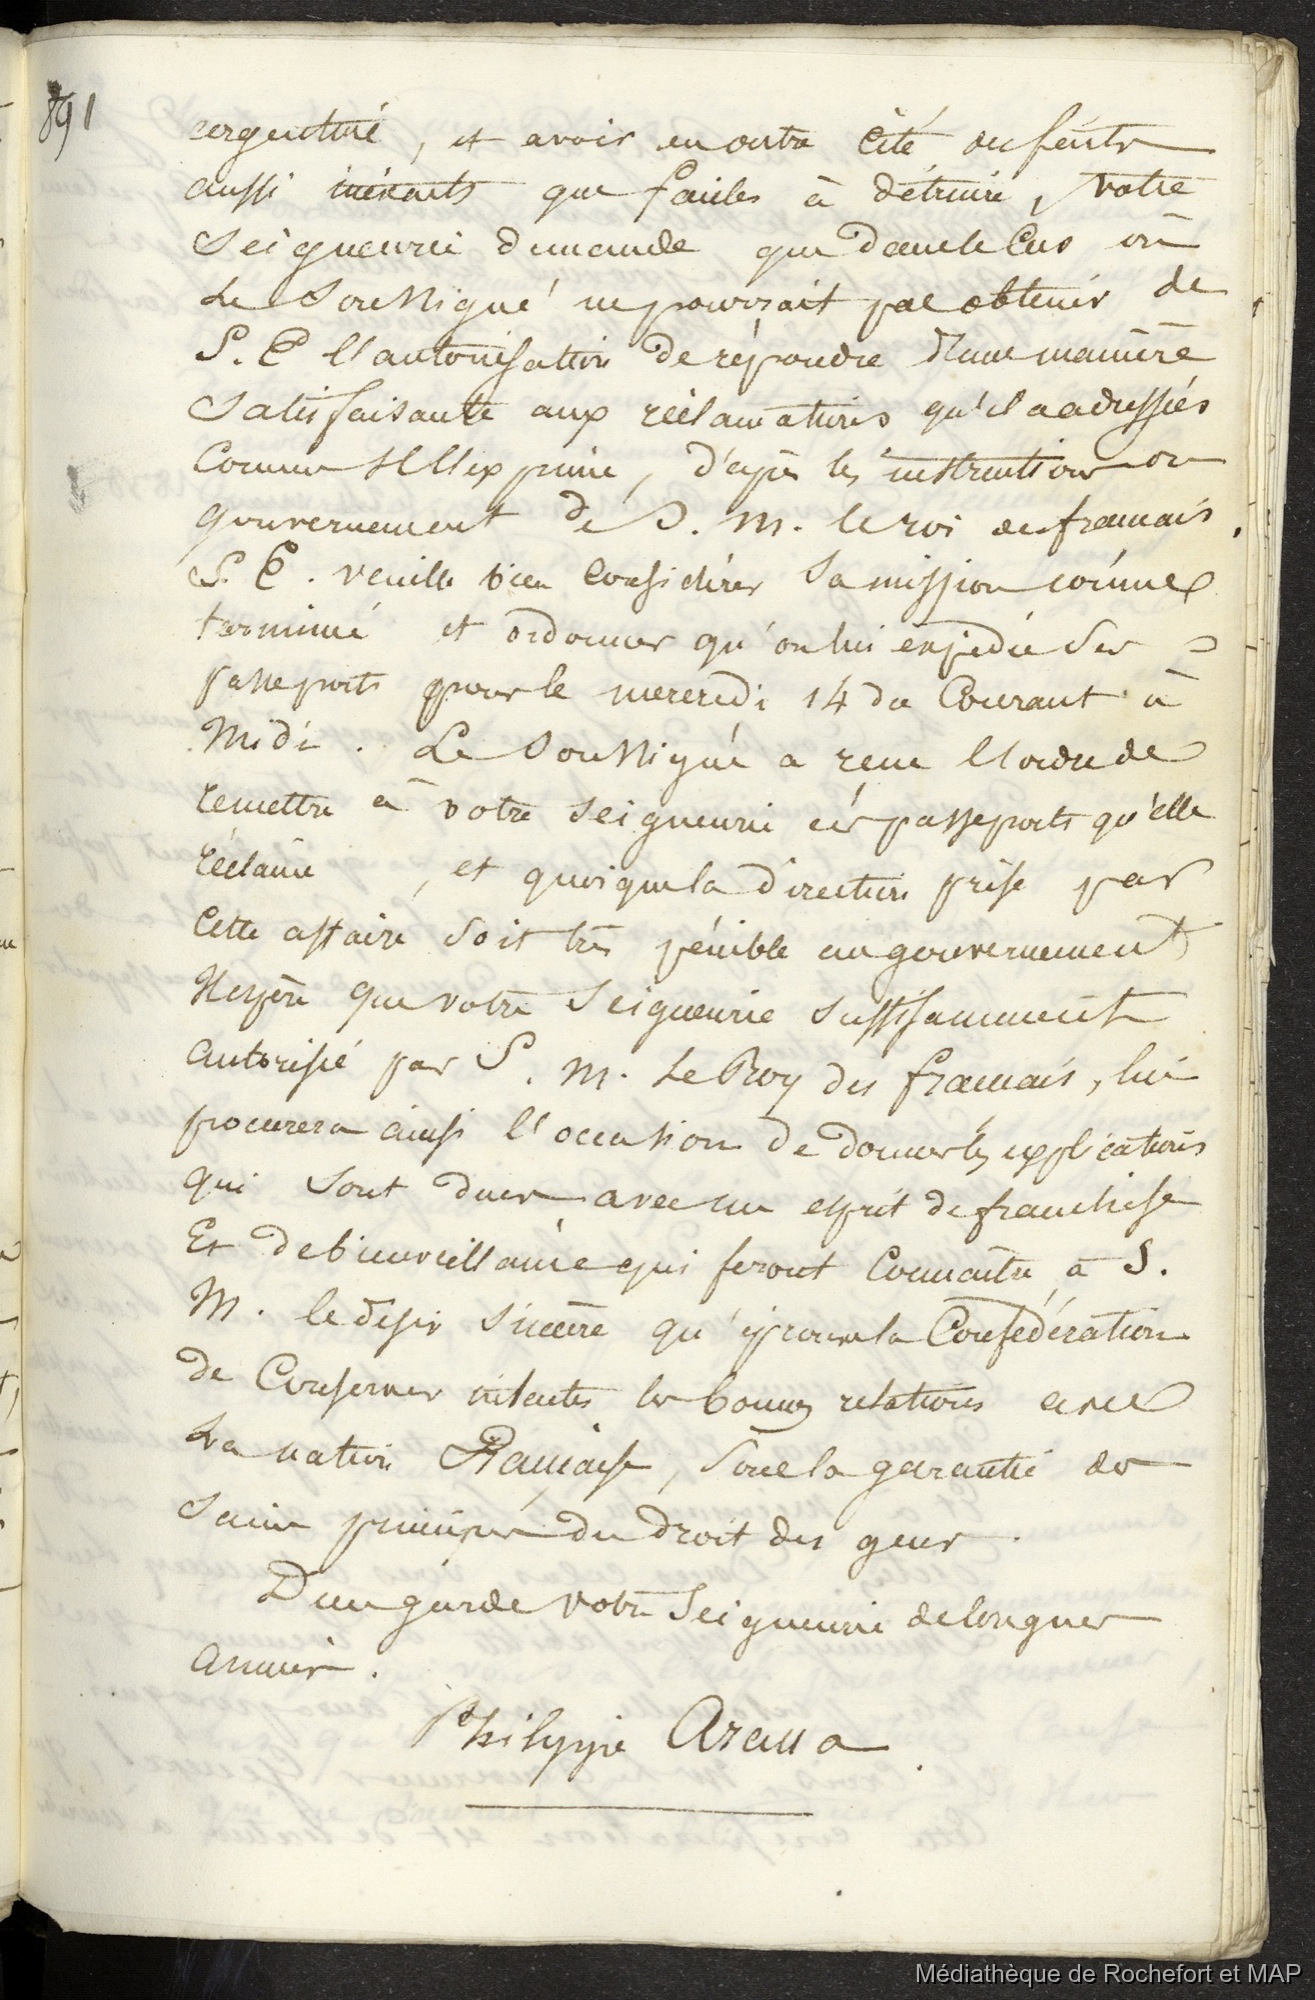 891
argentine, et avoir en outre cité des faits
aussi inéxacts que faciles à détruire, votre
Seigneurie demande que dans le Cas où
Le Soussigné ne pourrait pas obtenir de
S. E l'autorisation de répondre d'une manière
Satisfaisante aux réclamations qu'il a adressées
Comme Il l'exprime, d'après les instructions du
gouvernement de S. M. le roi des français,
S. E. veuille bien Considérer Sa mission comme
terminé et ordonner qu'on lui expédie Ses
passeports pour le mercredi 14 du Courant à
Midi. Le Soussigné a reçu l'ordre de
remettre à votre Seigneurie les passeports qu'elle
réclame, et quoique la direction prise par
Cette affaire Soit très pénible au gouvernement
Il espère que votre Seigneurie Suffisamment
autorisé par S. M. Le Roy des français, lui
procurera ainsi l'occasion de donner les explications
qui Sont dues avec un esprit de franchise
Et de bienveillance qui feront Connaître à S.
M. le désir Sincère qu'éprouve la Confédération
de Conserver intactes les bonnes relations avec
La nation Française, Sous la garantie des
Sains principes du droit des gens.
Dieu garde votre Seigneurie de longues
années.
Philippe Arana
Médiathèque de Rochefort et MAP